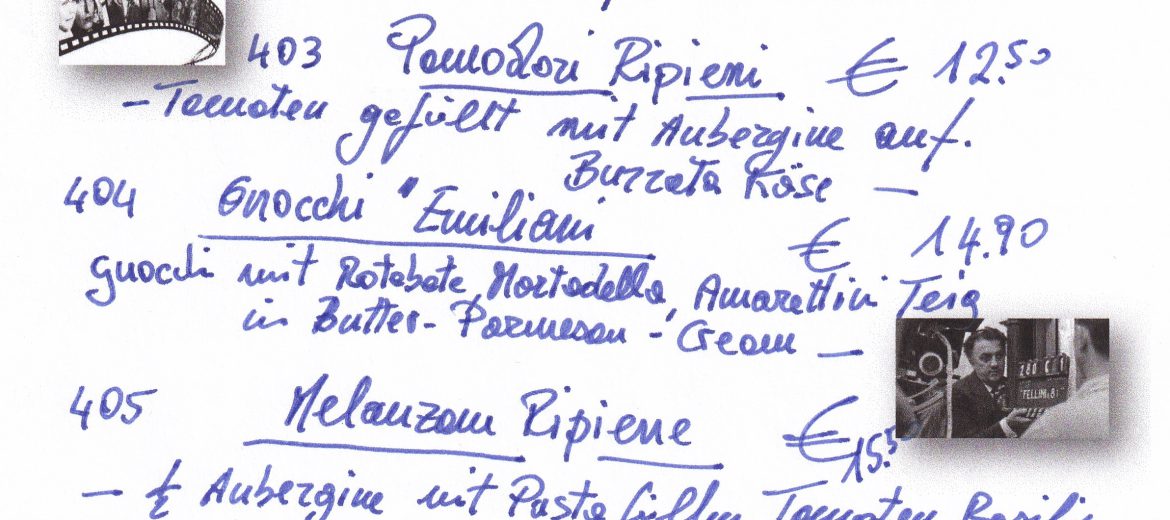 403 Pomodori Ripieni € 12.50
- Tomaten gefüllt mit Aubergine auf.
Burrata Käse —
404 Gnocchi "Emiliani € 14.90
gnocchi mit Rotebete, Mortadella, Amarettini Teig
in Butter- Parmesan - Cream —
405 Melanzane Ripiene € 15.5
FELLINI 8
— ½ Aubergine mit Pasta Tomaten